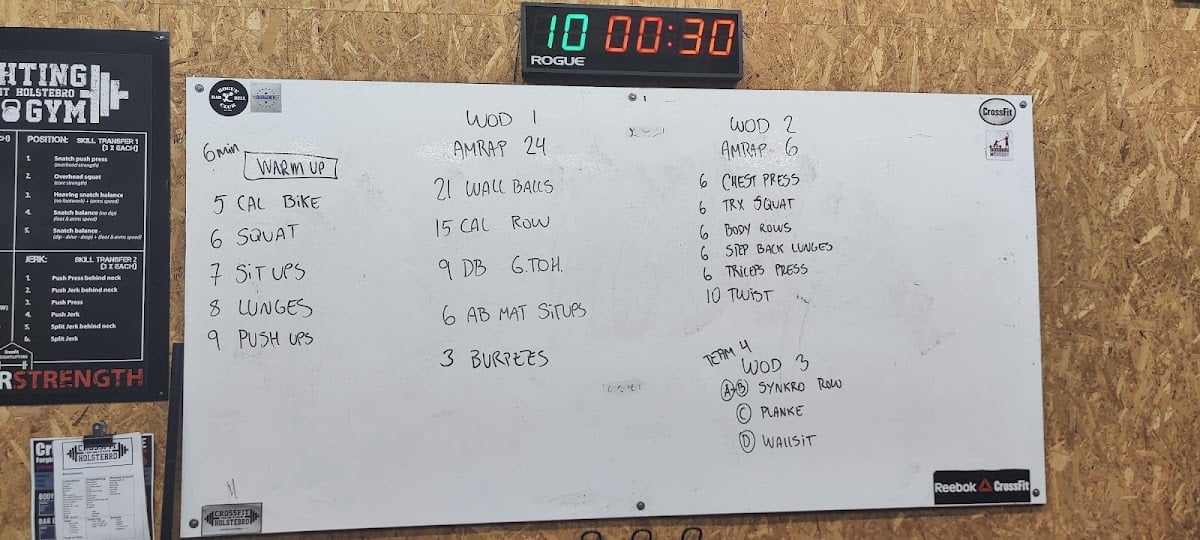 10 00:30
ROGUE
HTING
IT HOLSTEBRO
GYM
POSITION: SKILL TRANSFER 1
(3 X EACH)
1. Snatch push press
(overhead strength)
2. Overhead squat
(core strength)
3. Heaving snatch balance
(no footwork) + (arms speed)
4. Snatch balance (no dip)
(foot & arms speed)
5. Snatch balance -
(dip - drive - drop) + (foot & arms speed)
JERK: SKILL TRANSFER 2
(3 X EACH)
1. Push Press behind neck
2. Push Jerk behind neck
3. Push Press
4. Push Jerk
5. Split Jerk behind neck
6. Split Jerk
RSTRENGTH
CROSSFIT
HOLSTEBRO
ROGUE
BAR BELL
CLUB
6 min
WARM UP
5 CAL BIKE
6 SQUAT
7 SIT UPS
8 LUNGES
9 PUSH UPS
WOD 1
AMRAP 24
21 WALL BALLS
15 CAL ROW
9 DB G.TOH.
6 AB MAT SITUPS
3 BURPEES
WOD 2
AMRAP 6
6 CHEST PRESS
6 TRX SQUAT
6 BODY ROWS
6 STEP BACK LUNGES
6 TRICEPS PRESS
10 TWIST
TEAM 4
WOD 3
A+B SYNKRO ROW
C PLANKE
D WALLSIT
CrossFit
CROSSFIT
HOLSTEBRO
Reebok CrossFit